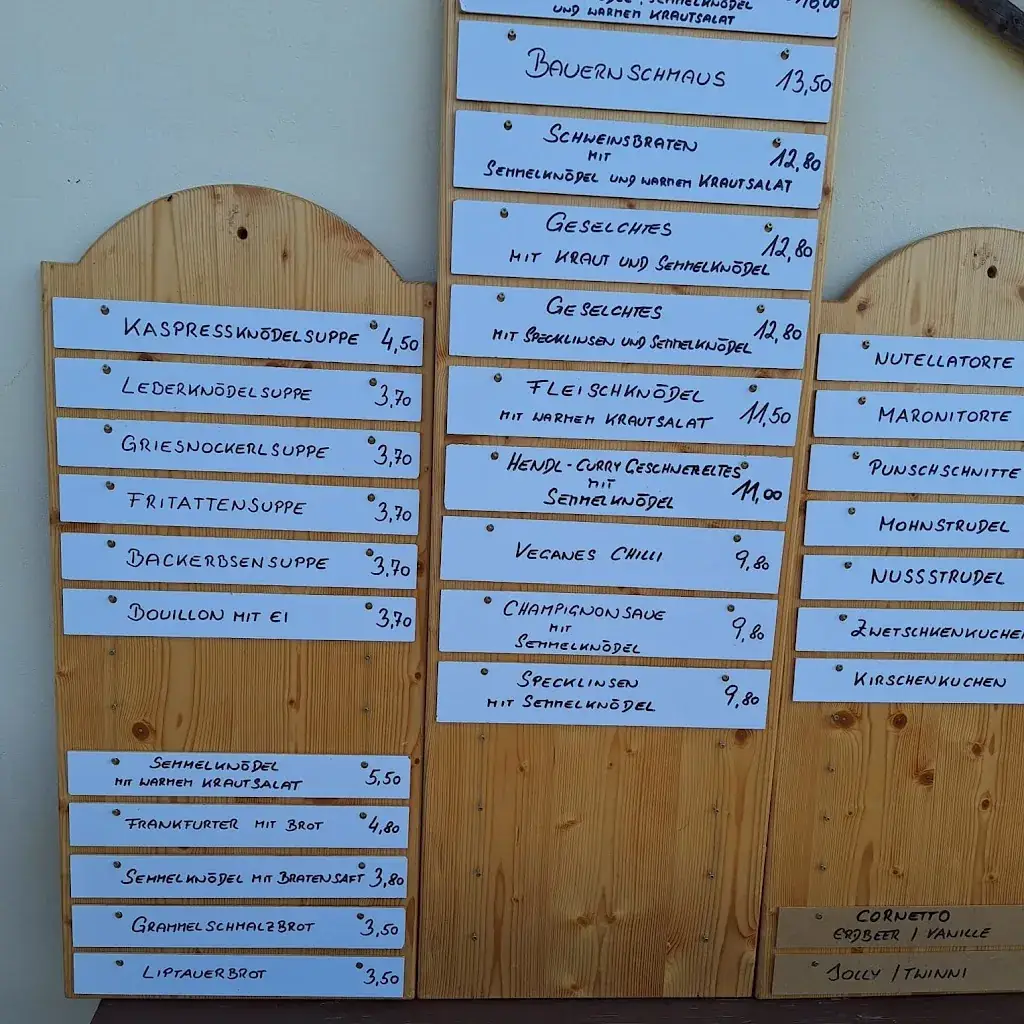 KASPRESSKNÖDELSUPPE 4,50
LEBERKNÖDELSUPPE 3,70
GRIESNOCKERLSUPPE 3,70
FRITATTENSUPPE 3,70
BACKERBSENSUPPE 3,70
BOUILLON MIT EI 3,70
SEMMELKNÖDEL
MIT WARMEM KRAUTSALAT 5,50
FRANKFURTER MIT BROT 4,80
SEMMELKNÖDEL MIT BRATENSAFT 3,80
GRAMMELSCHMALZBROT 3,50
LIPTAUERBROT 3,50
SEMMELKNÖDEL
UND WARMEM KRAUTSALAT
BAUERNSCHMAUS 13,50
SCHWEINSBRATEN
MIT 12,80
SEMMELKNÖDEL UND WARMEM KRAUTSALAT
GESELCHTES 12,80
MIT KRAUT UND SEMMELKNÖDEL
GESELCHTES 12,80
MIT SPECKLINSEN UND SEMMELKNÖDEL
FLEISCHKNÖDEL
MIT WARMEM KRAUTSALAT 11,50
HENDL-CURRYGESCHNEREITES
MIT 11,00
SEMMELKNÖDEL
VEGANES CHILLI 9,80
CHAMPIGNONSAUE
MIT 9,80
SEMMELKNÖDEL
SPECKLINSEN 9,80
MIT SEMMELKNÖDEL
NUTELLATORTE
MARONITORTE
PUNSCHSCHNITTE
MOHNSTRUDEL
NUSSSTRUDEL
ZWETSCHKENKUCHEN
KIRSCHENKUCHEN
CORNETTO
ERDBEER / VANILLE
JOLLY / TWINNI